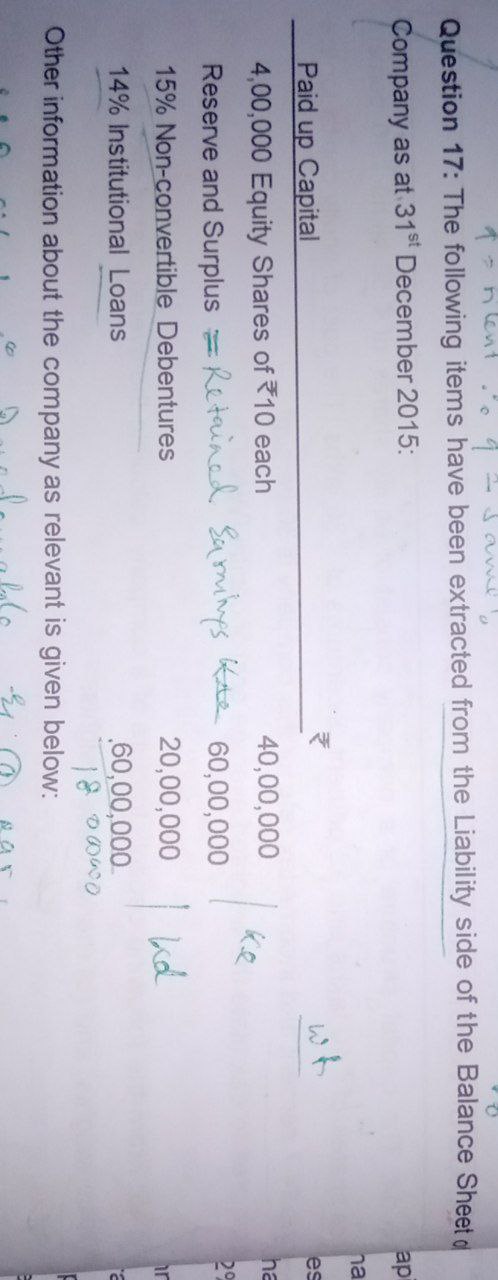 Question 17: The following items have been extracted from the Liability side of the Balance Sheet
Company as at 31st December 2015:
Paid up Capital ₹
4,00,000 Equity Shares of ₹10 each 40,00,000 Ke
Reserve and Surplus = Retained Earnings 60,00,000
15% Non-convertible Debentures 20,00,000 kd
14% Institutional Loans 60,00,000
Other information about the company as relevant is given below:
wt